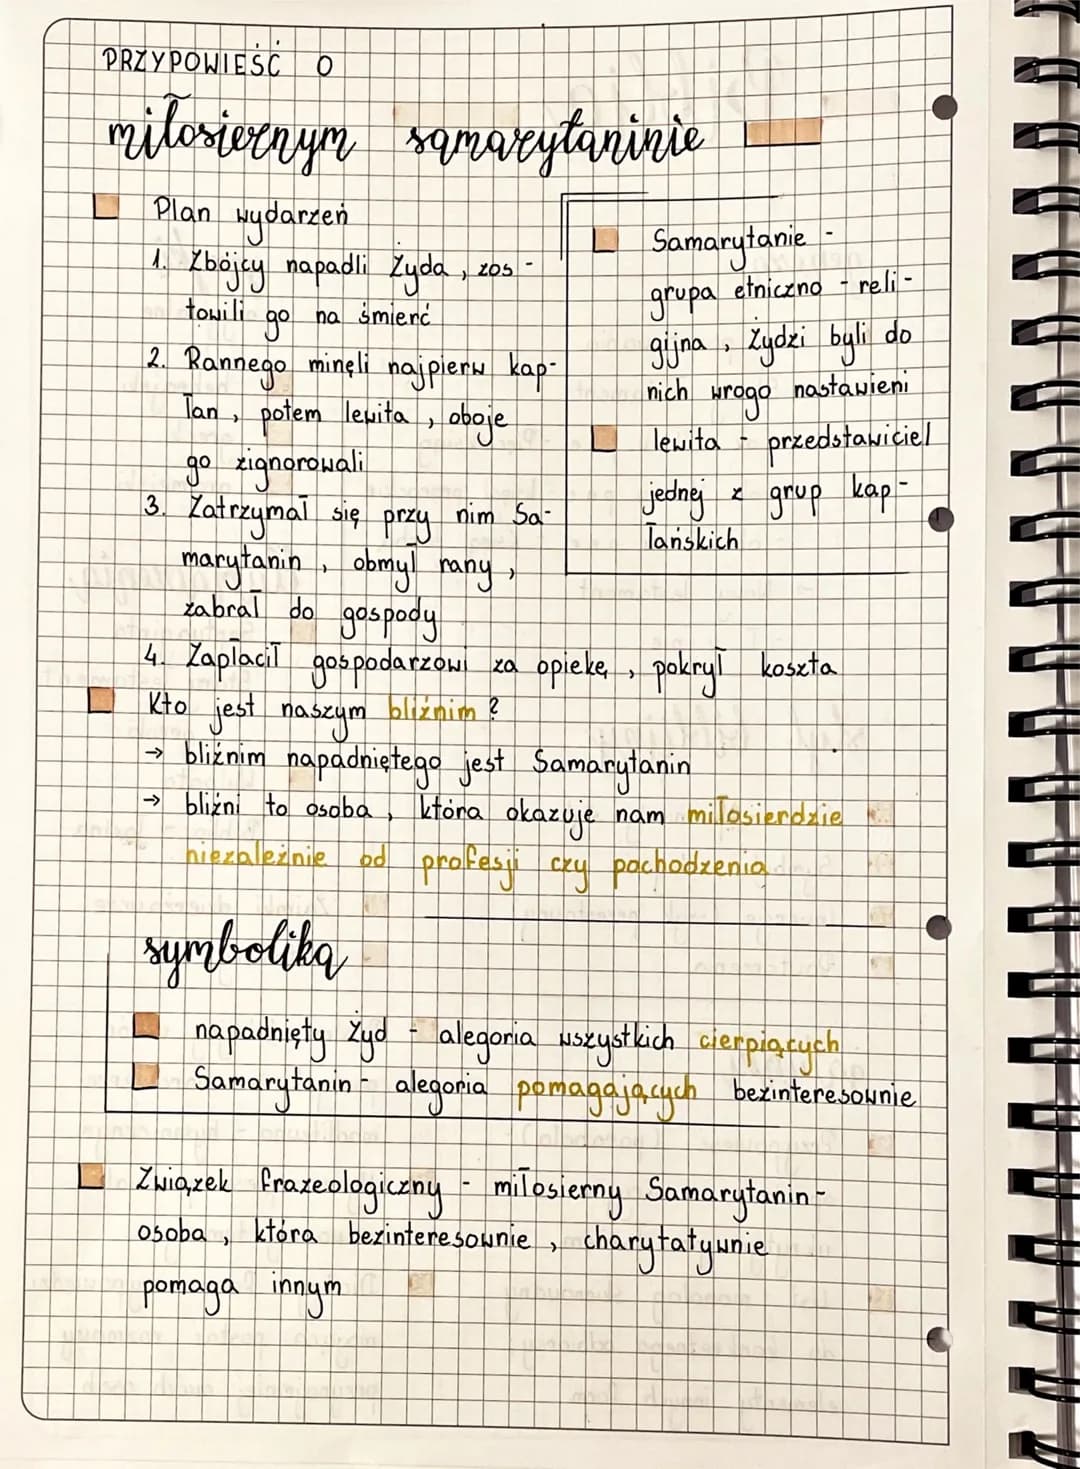 PRZYPOWIEŚĆ O
miłosiernym samarytaninie
Plan wydarzeń
1. Zbójcy napadli Żyda, zos-
towili go na śmierć
2. Rannego minęli najpierw kap-
łan, potem lewita, oboje
go zignorowali
3. Zatrzymał się przy nim Sa-
marytanin, obmył rany,
zabrał do gospody
4. Zapłacił gospodarzowi za opiekę, pokrył koszta
Samarytanie -
grupa etniczno - reli-
gijna, Żydzi byli do
nich wrogo nastawieni
lewita - przedstawiciel
jednej z grup kap-
łańskich
Kto jest naszym bliźnim?
→ bliźnim napadniętego jest Samarytanin
→ bliźni to osoba, która okazuje nam miłosierdzie
niezależnie od profesji czy pochodzenia
symbolika
napadnięty Żyd - alegoria wszystkich cierpiących
Samarytanin - alegoria pomagających bezinteresownie
Związek frazeologiczny - miłosierny Samarytanin -
osoba, która bezinteresownie, charytatywnie
pomaga innym